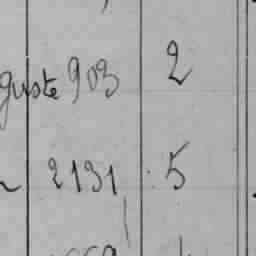 guste 903 2
2131 5